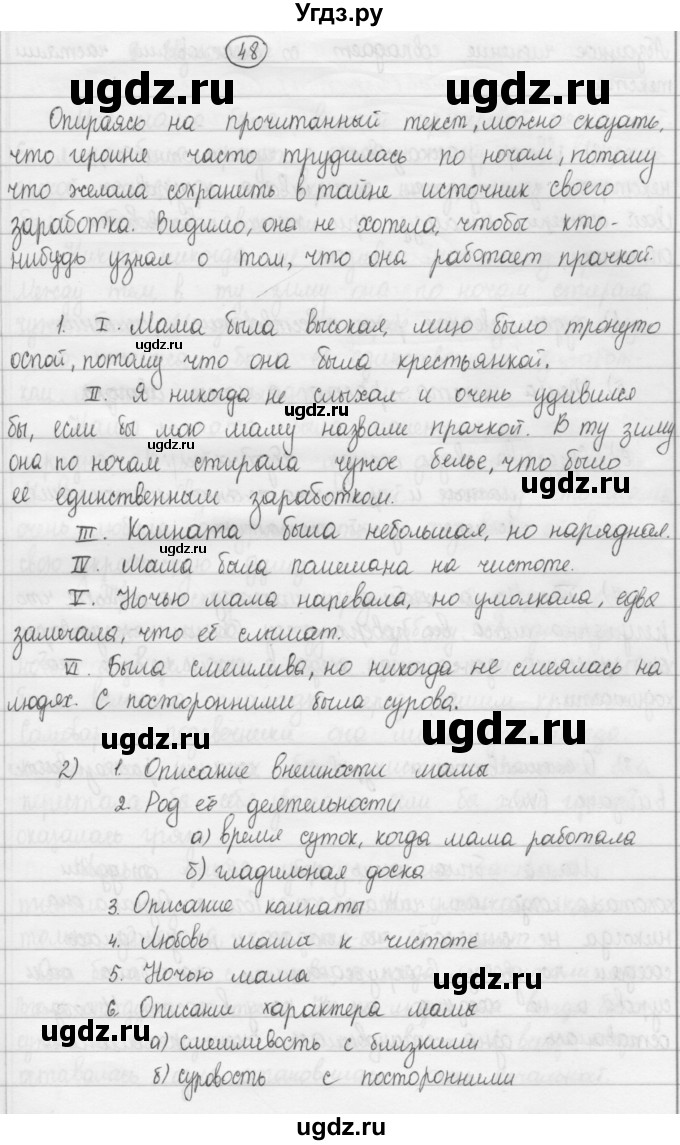 Угдз.ру
48
ugdz.ru ugdz.ru
Опираясь на прочитанный текст, можно сказать,
что героиня часто трудилась по ночам, потому
что желала сохранить в тайне источник своего
заработка. Видимо, она не хотела, чтобы кто-
нибудь узнал о том, что она работает прачкой.
ugdz.ru
ugdz.ru
1. I. Мама была высокая, лицо было тронуто
оспой, потому что она была крестьянкой.
II. Я никогда не слыхал и очень удивился
ugdz.ru
бы, если бы мою маму назвали прачкой. В ту зиму
ugdz.ru
она по ночам стирала чужое белье, что было
ugdz.ru
её единственным заработком.
III. Комната была небольшая, но нарядная.
ugdz.ru
IV Мама была помешана на чистоте.
V. Ночью мама напевала, но умолкала, едва
ugdz.ru
замечала, что её слышат.
VI. Была смешлива, но никогда не смеялась на
людях. С посторонними была сурова.
ugdz.ru
ugdz.ru
2) 1. Описание внешности мамы
2. Род её деятельности
а) время суток, когда мама работала
б) гладильная доска
3. Описание комнаты
4. Любовь мамы к чистоте
5. Ночью мама
6. Описание характера мамы
ugdz.ru
ugdz.ru
а) смешливость с близкими
б) суровость с посторонними
ugdz.ru